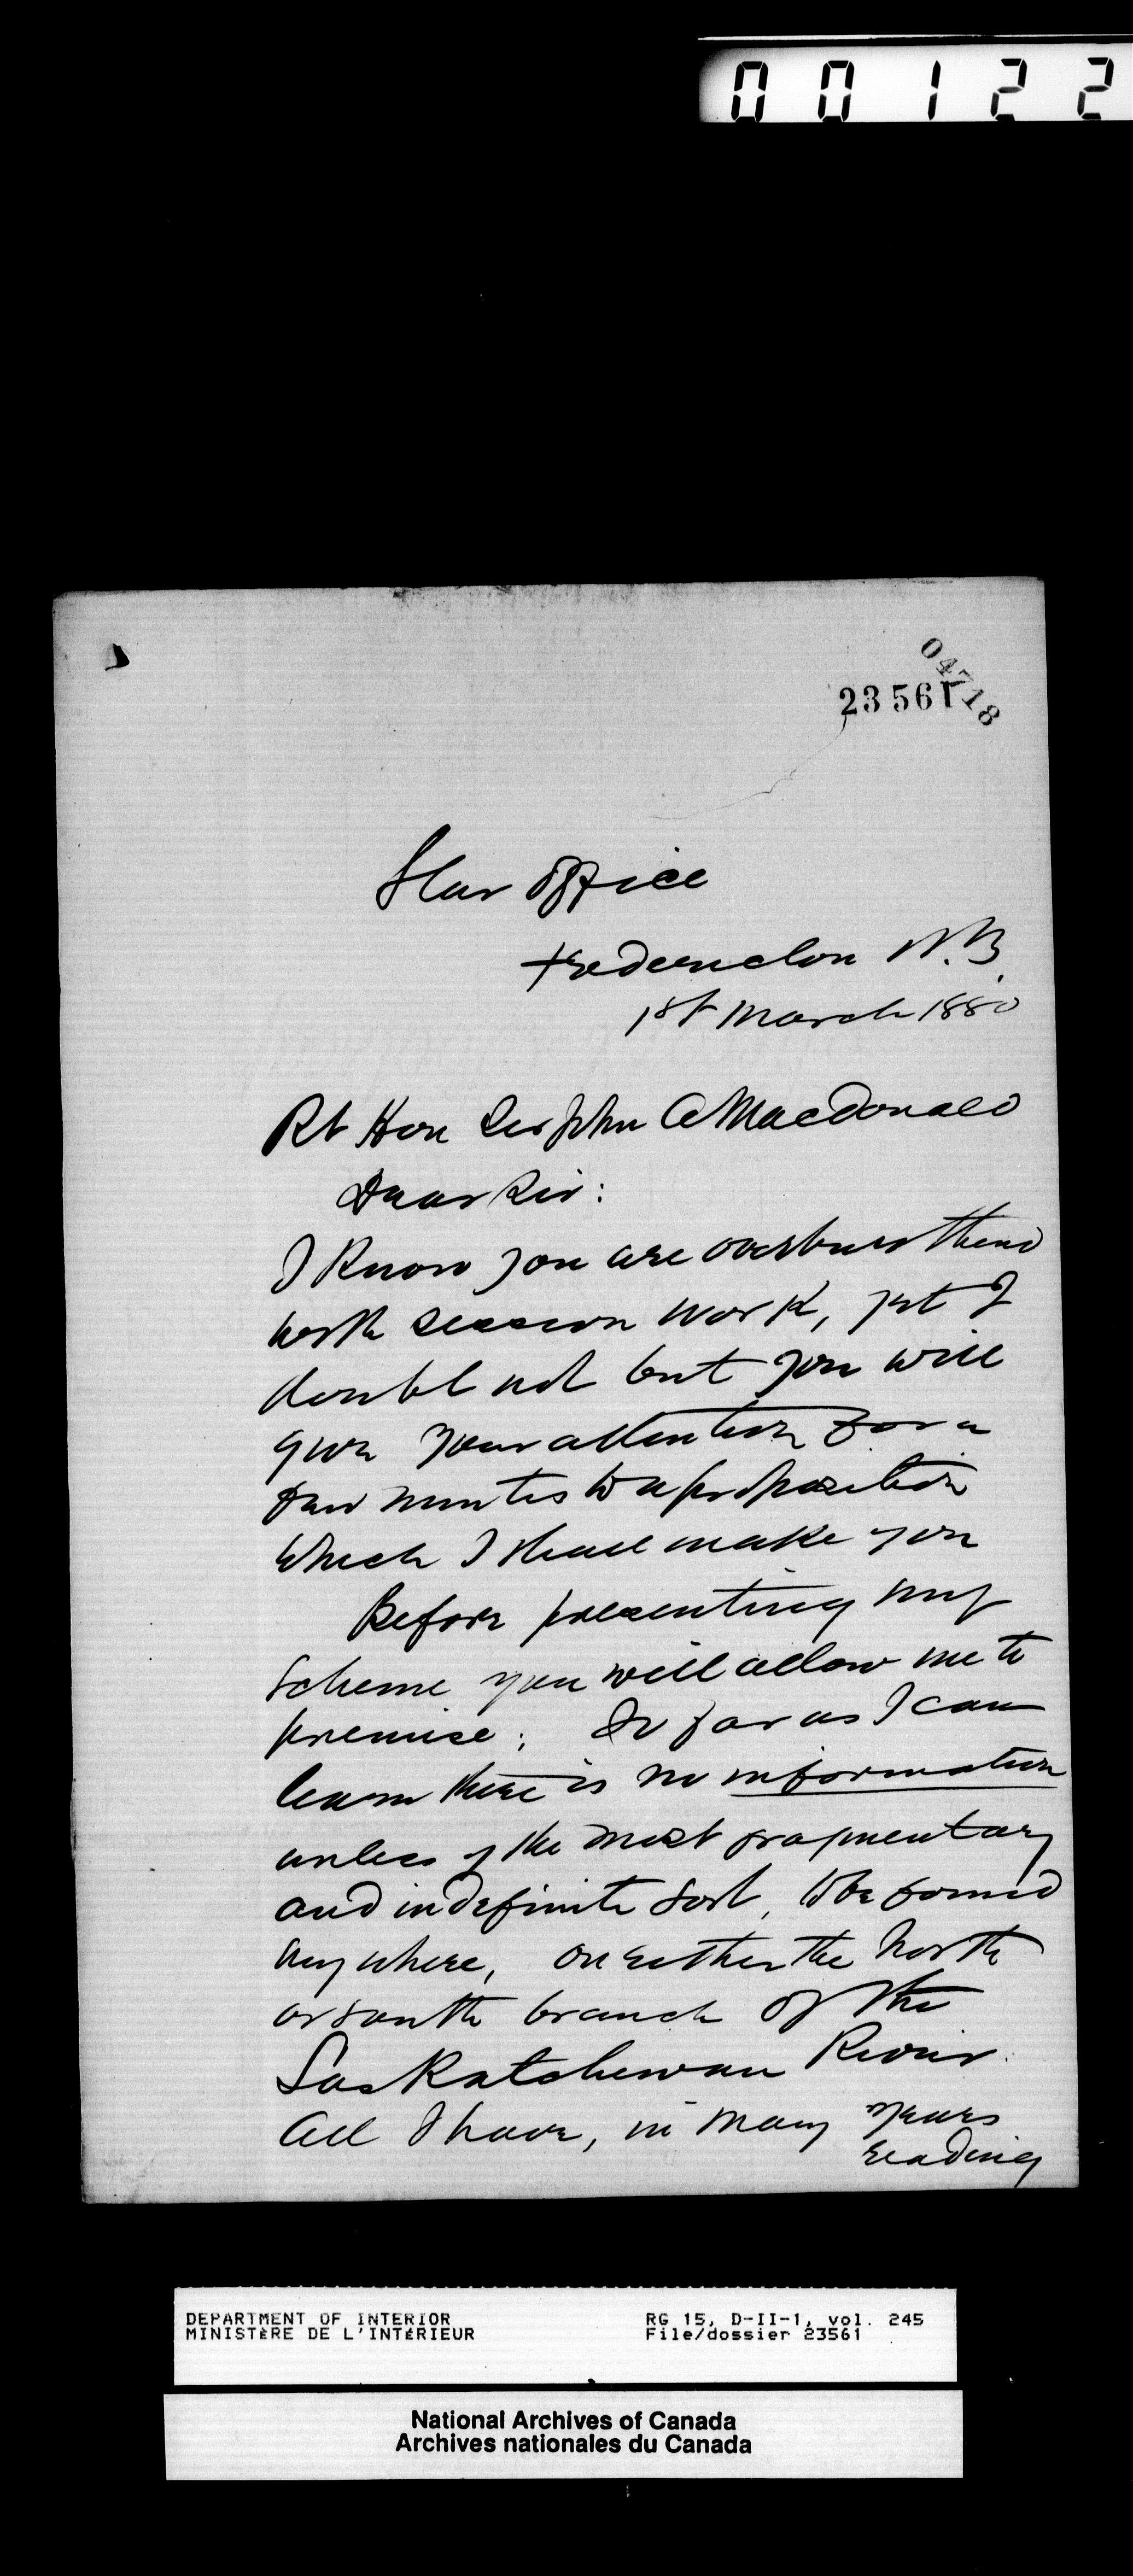 00122
04718
23561
Star Office
Fredericton N.B.
1st March 1880
Rt Hon Sir John A MacDonald
Dear Sir:
I know you are overburthened
with session work, yet I
doubt not but you will
give your attention for a
few minutes to a proposition
which I shall make you
Before presenting my
scheme you will allow me to
premise; So far as I can
learn there is no information
unless of the most fragmentary
and indefinite sort, to be found
anywhere, on either the North
or South branch of the
Saskatchewan River.
All I have, in many years
reading
DEPARTMENT OF INTERIOR RG 15, D-II-1, vol. 245
MINISTÈRE DE L'INTÉRIEUR File/dossier 23561
National Archives of Canada
Archives nationales du Canada